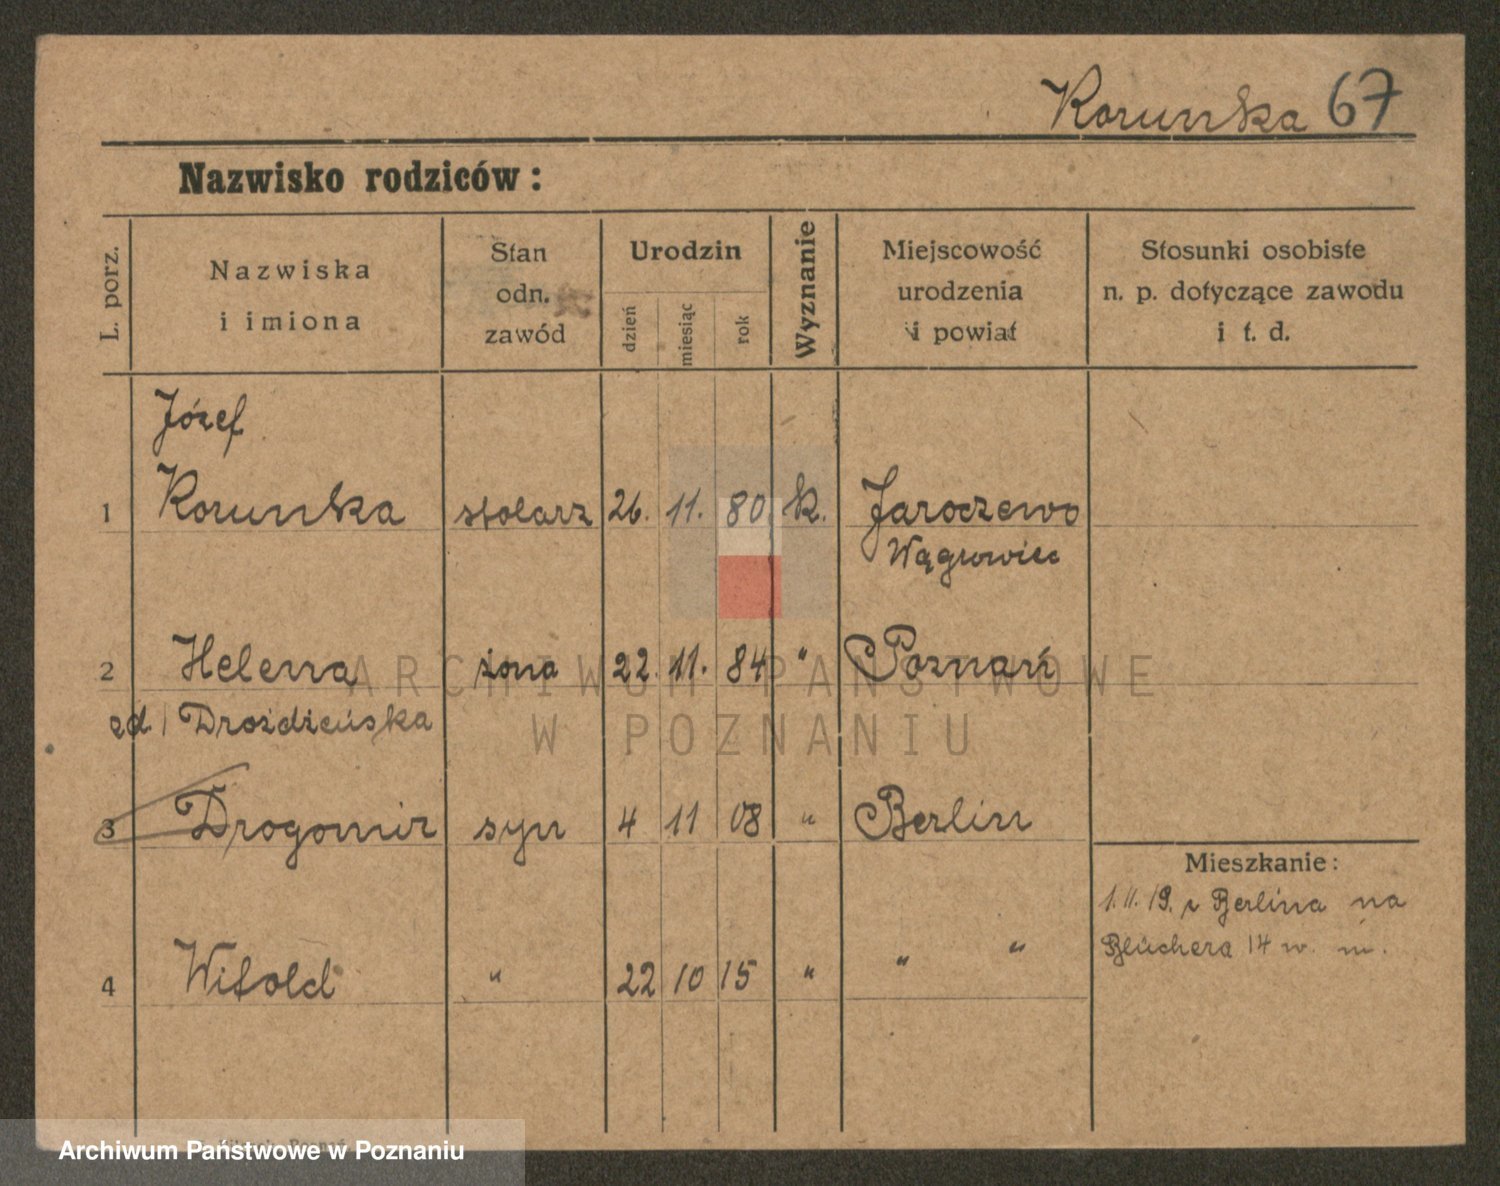 Korunka 67
Nazwisko rodziców:
L. porz.
Nazwiska
i imiona
Stan
odn.
zawód
Urodzin
dzień
miesiąc
rok
Wyznanie
Miejscowość
urodzenia
i powiat
Stosunki osobiste
n. p. dotyczące zawodu
i t. d.
Józef
1 Korunka stolarz 26. 11. 80 k. Jaroczewo
Wągrowiec
2 Helena żona 22. 11. 84 " Poznań
zd. Drożdżeńska
3 Drogomir syn 4 11 08 " Berlin
Mieszkanie:
1. 11. 19. z Berlina na
Blüchera 14 w. m.
4 Witold " 22 10 15 " " "
ARCHIWUM PAŃSTWOWE
W POZNANIU
Archiwum Państwowe w Poznaniu